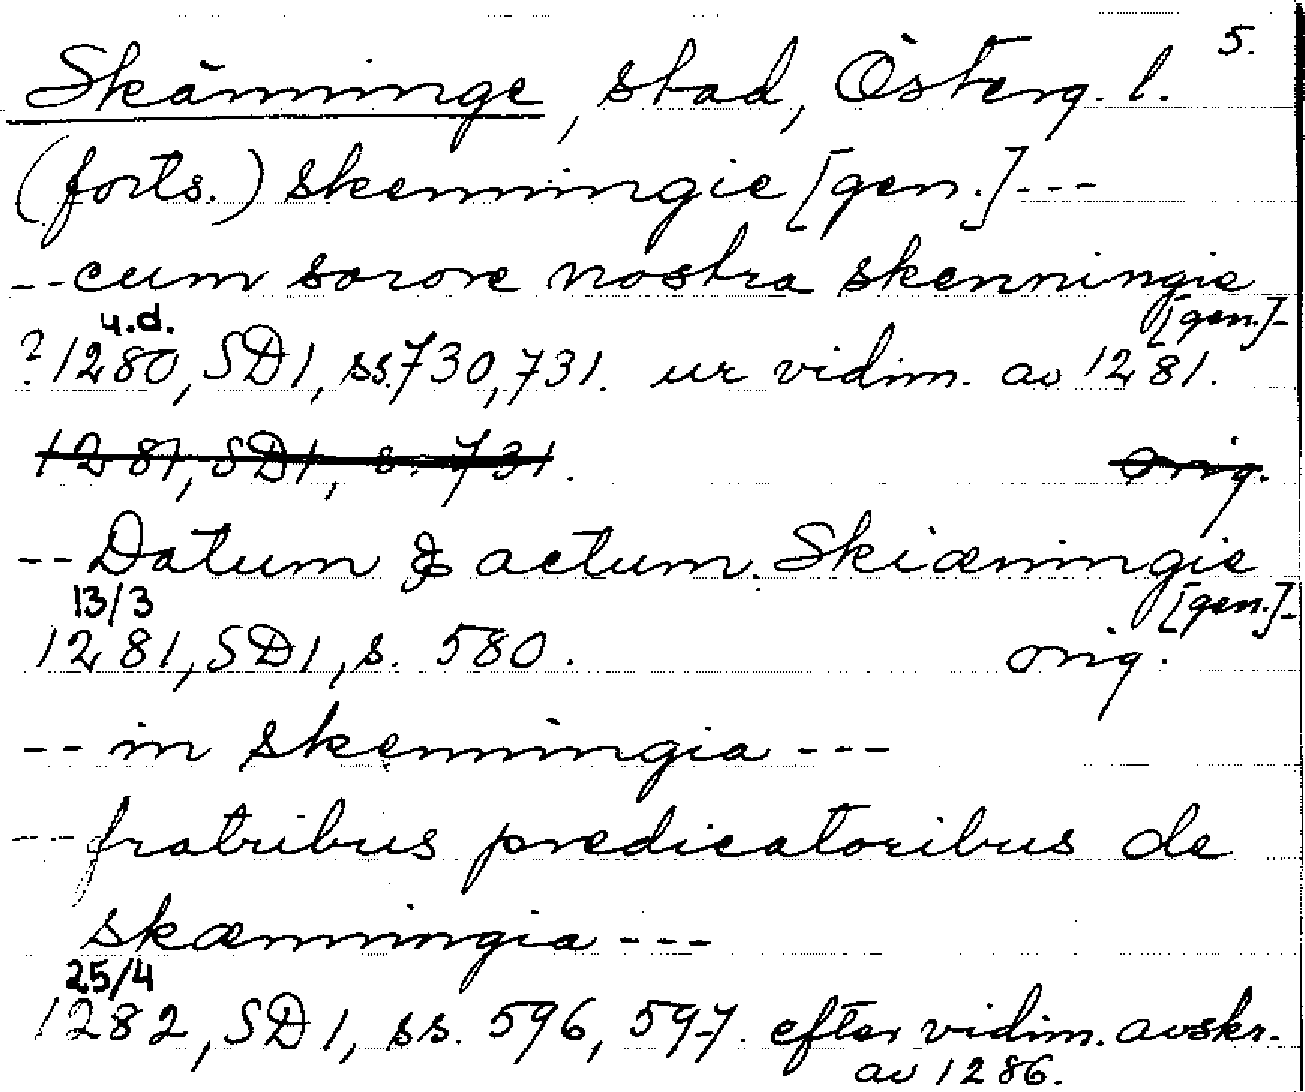 5.
Skänninge, stad, Österg. l.
(forts.) skenningie [gen.]---
--cum sorore nostra skenningie
u.d. [gen.]-
?1280, SD1, ss. 730, 731. ur vidim. av 1281.
1281, SD1, s. 731. orig.
--Datum & actum. Skiæningie
13/3 [gen.]-
1281, SD1, s. 580. orig.
-- in skenningia ---
---fratribus predicatoribus de
skænningia ---
25/4
1282, SD1, ss. 596, 597. efter vidim. avskr.
av 1286.